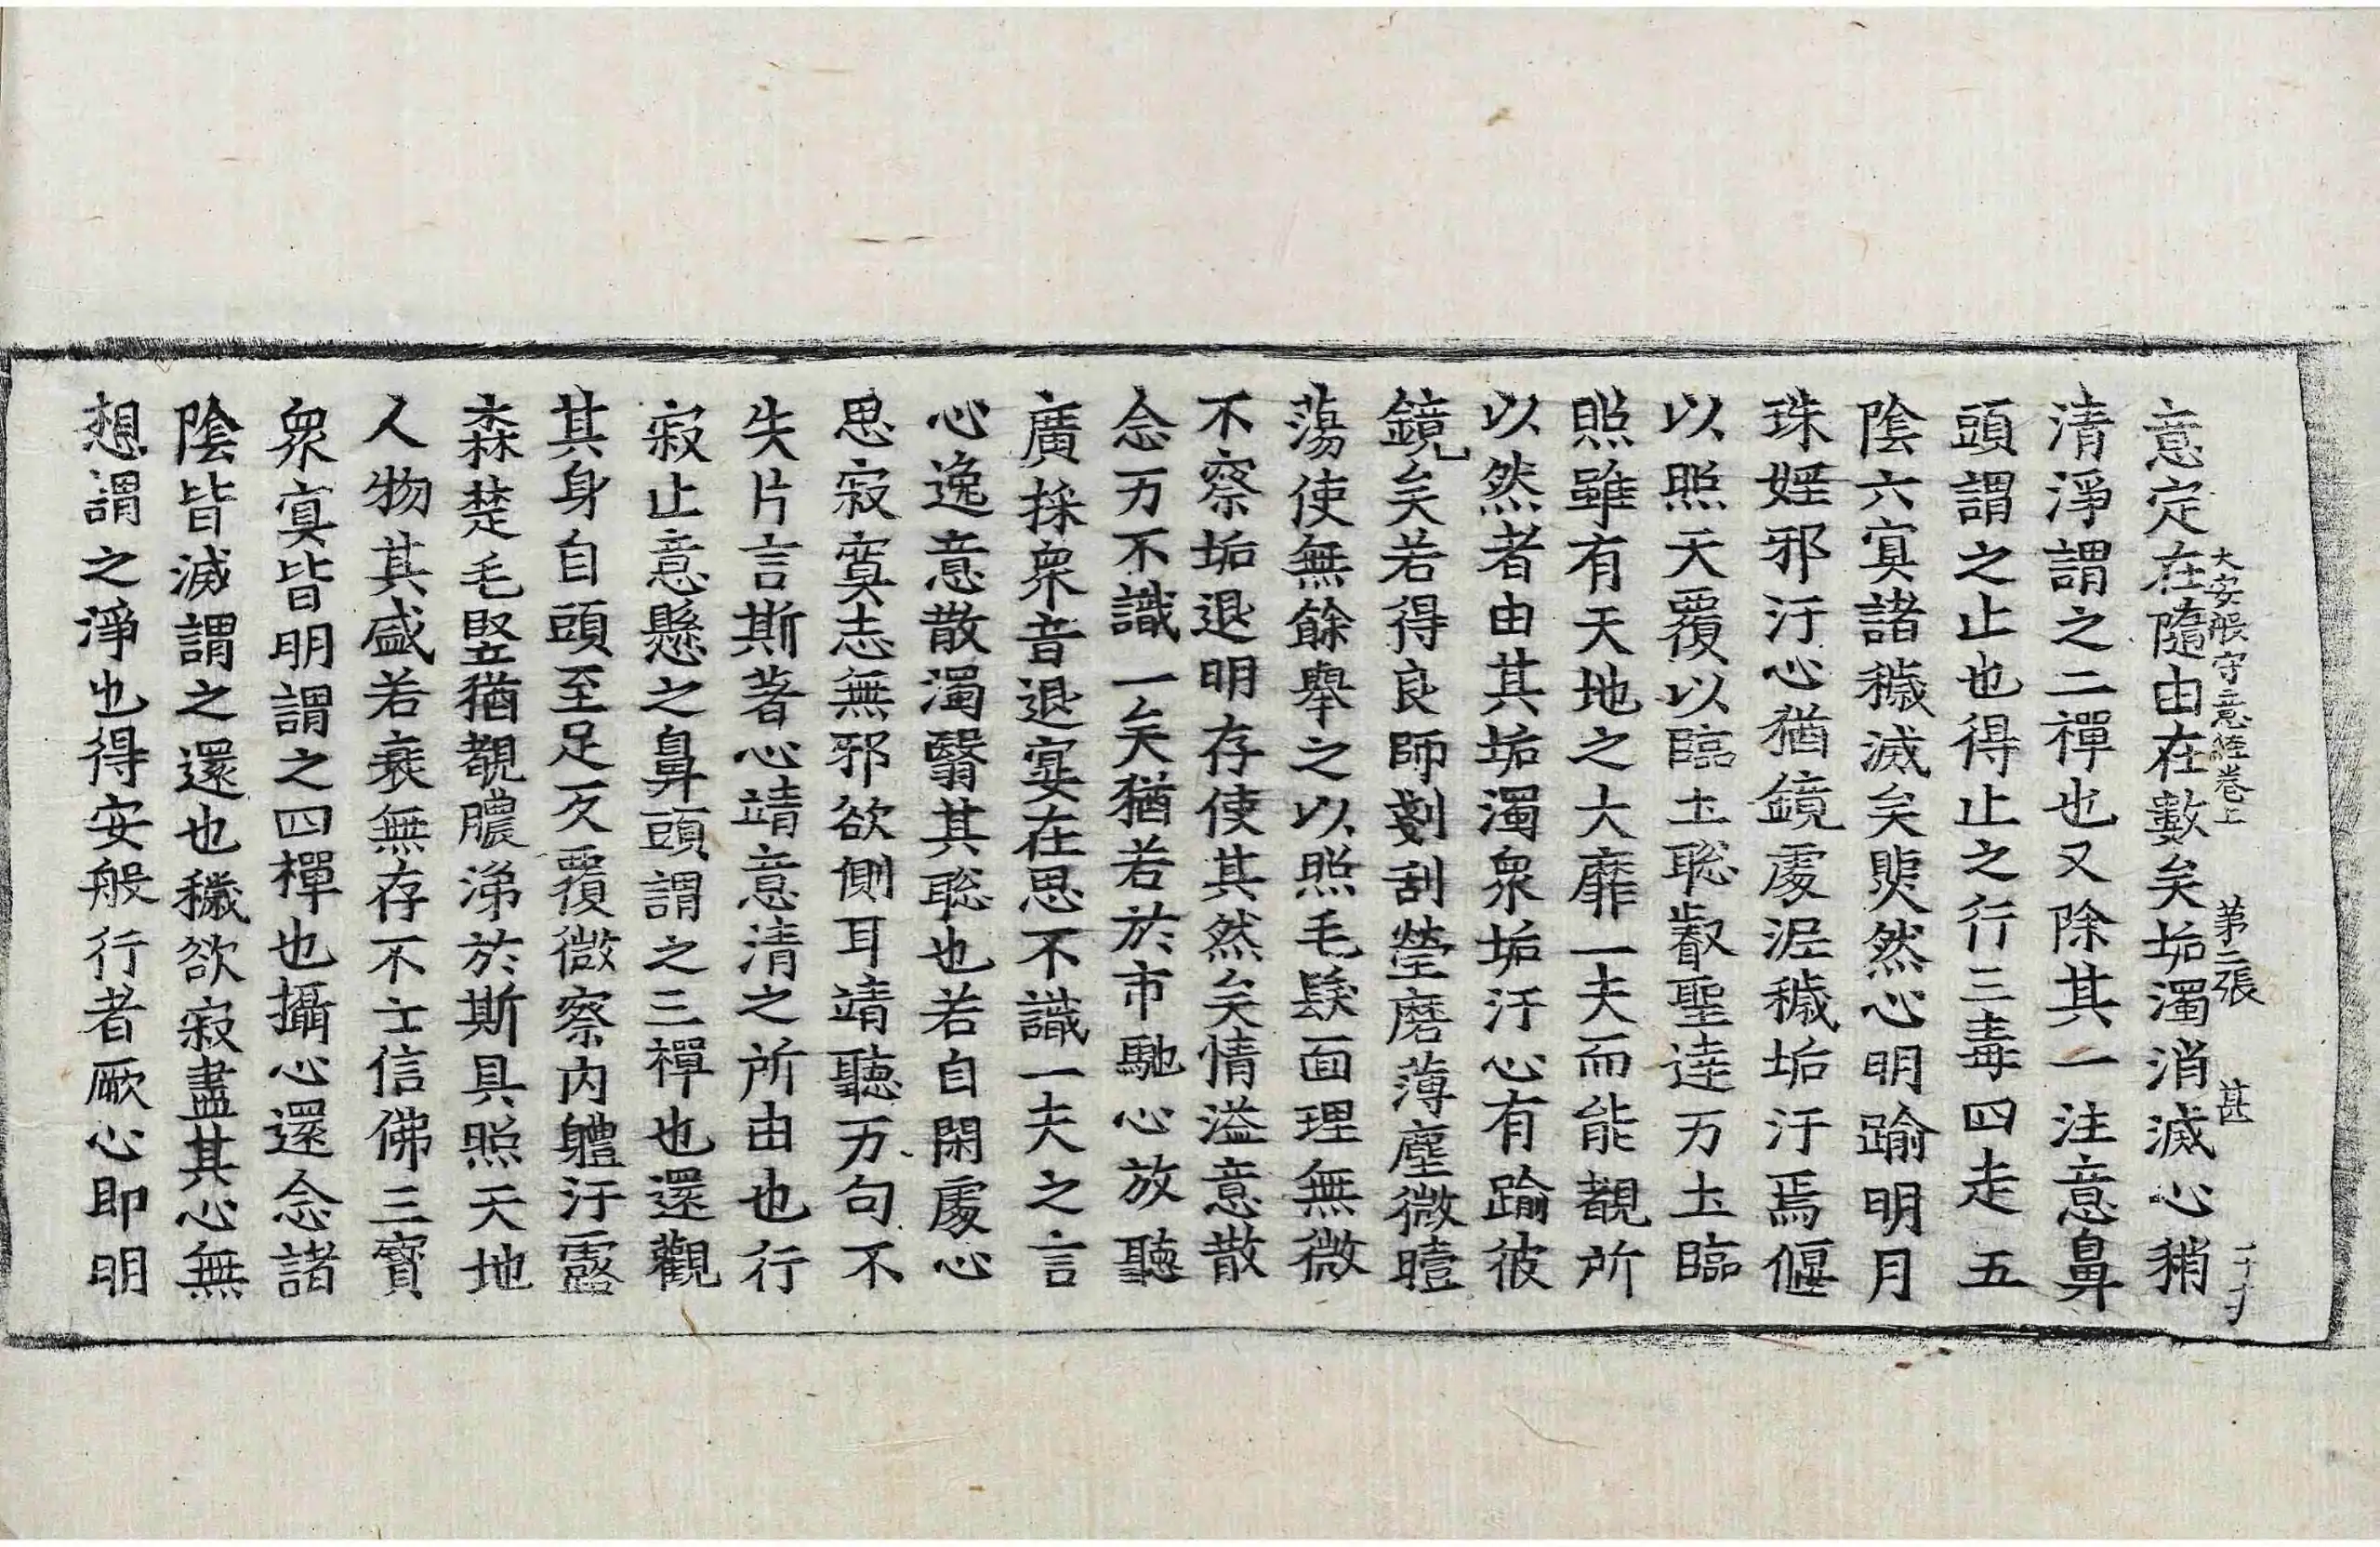 大安般守意經卷上　第二張　甚
意定在隨由在數矣垢濁消滅心稍
清淨謂之二禪也又除其一注意鼻
頭謂之止也得止之行三毒四走五
陰六㝠諸穢滅矣煚然心明踰明月
珠婬邪汙心猶鏡處泥穢垢汙焉偃
以照天覆以臨土聡叡聖達万土臨
照雖有天地之大靡一夫而能覩所
以然者由其垢濁衆垢汙心有踰彼
鏡矣若得良師剗刮瑩磨薄塵微曀
蕩使無餘舉之以照毛髮面理無微
不察垢退明存使其然矣情溢意散
念万不識一矣猶若於市馳心放聽
廣採衆音退宴在思不識一夫之言
心逸意散濁翳其聡也若自閑處心
思寂寞志無邪欲側耳靖聽万句不
失片言斯著心靖意清之所由也行
寂止意懸之鼻頭謂之三禪也還觀
其身自頭至足反覆微察內軆汙露
森楚毛竪猶覩膿涕於斯具照天地
人物其盛若衰無存不亡信佛三寳
衆㝠皆明謂之四禪也攝心還念諸
陰皆滅謂之還也穢欲寂盡其心無
想謂之淨也得安般行者厥心即明